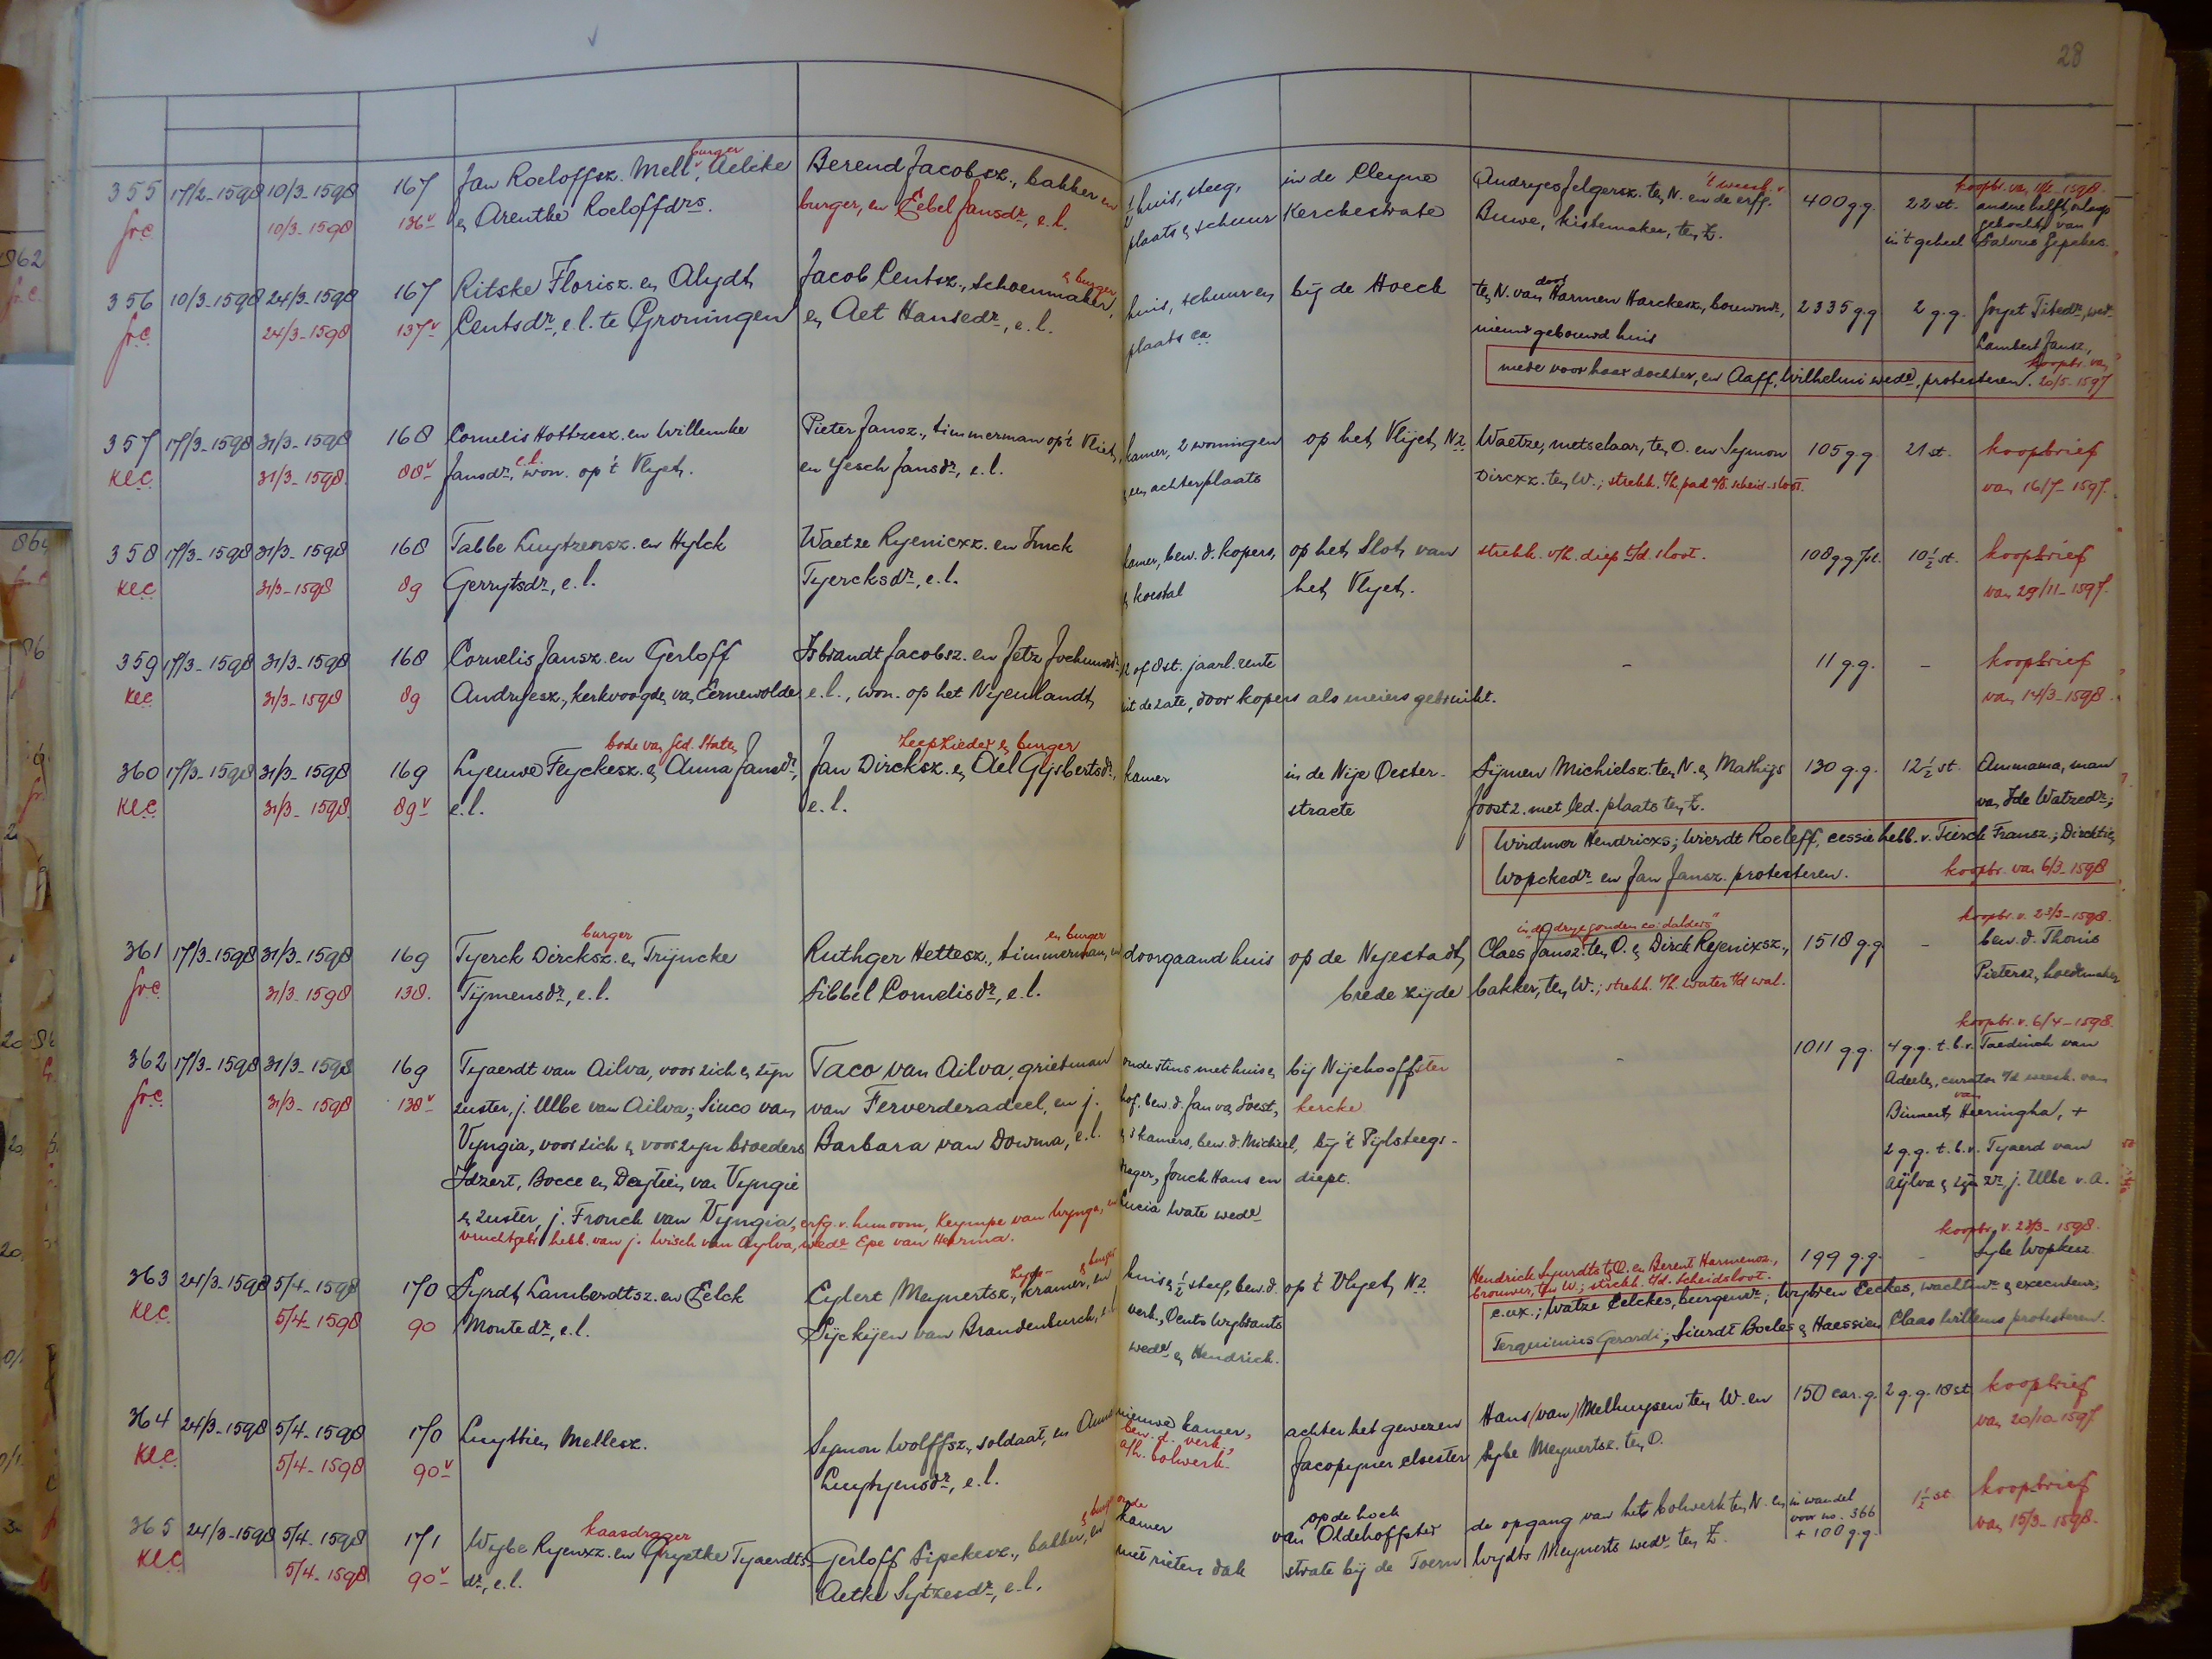 28
355 17/2-1598 10/3-1598 167 Jan Roeloffsz. Mell, burger, Aelcke Berend Jacobsz., bakker en huis, steeg, in de Cleyne Andryes Jelgersz. ten N. en de erfg. 400 g.g. 22 st. koopbr. van
10/3-1598 136v & Arentke Roeloffdrs. burger, en Eebel Jansdr, e.l. plaats & schuur Kerckestrate Buwe, kistemaker, ten Z. in 't geheel andere helft gekocht van
356 10/3-1598 24/3-1598 167 Ritske Florisz. en Alydt Jacob Centsz., schoenmaker, & burger huis, schuur en bij de Hoeck ten N. van door Harmen Harckesz., bouwmr, 2335 g.g. 2 g.g. Tibedr, wede
24/3-1598 137v Centsdr, e.l. te Groningen en Aet Hansedr, e.l. plaats ca nieuw gebouwd huis Lambert Jansz.,
mede voor haar dochter, en Aaff, Wilhelmi wede, protesteren. koopbr. van 20/5-1597
357 17/3-1598 31/3-1598 168 Cornelis Hottzesz. en Willemke Pieter Jansz., timmerman op 't Vliet, kamer, 2 woningen op het Vlyet, NZ Waetze, metselaar, ten O. en Symon 105 g.g. 21 st. koopbrief
KLC 31/3-1598 88v Jansdr, e.l. won. op 't Vlyet. en Yesch Jansdr, e.l. & een achterplaats Dircxz. ten W.; strekk. v/h. pad a/d. scheid-sloot. van 16/7-1597.
358 17/3-1598 31/3-1598 168 Tabbe Luytzensz. en Hylck Waetze Ryenicxz. en Imck kamer, bew. d. kopers, op het Slot van strekk. v/h. diep t/d sloot. 108 g.g. 7st. 10½ st. koopbrief
KLC 31/3-1598 89 Gerrytsdr, e.l. Tyercksdr, e.l. & koestal het Vlyet. van 29/11-1597.
359 17/3-1598 31/3-1598 168 Cornelis Jansz. en Gerloff Isbrandt Jacobsz. en Jetz Jochumsdr of 8 st. jaarl. rente - 11 g.g. - koopbrief
KLC 31/3-1598 89 Andryesz., kerkvoogden van Eernewolde e.l., won. op het Nyenlandt, uit de zate, door kopers als meiers gebruikt. van 14/3-1598.
360 17/3-1598 31/3-1598 169 Lyeuwe Feyckesz. & Anna Jansdr, bode van Ged. Staten Jan Dircksz. & Ael Gysbertsdr, zeepzieder & burger kamer in de Nije Oester- Symen Michielsz. ten N. & Mathijs 130 g.g. 12½ st. Ammama, man
KLC 31/3-1598 89v e.l. e.l. straete Joostz. met led. plaats ten Z. van Ide Watzedr;
Wirdmer Hendricxs; Wierdt Roeleff, cessie hebb. v. Tierck Fransz.; Dircktie
Wopckedr en Jan Jansz. protesteren. koopbr. van 6/3-1598
361 17/3-1598 31/3-1598 169 Tyerck Dircksz. en burger Tryncke Ruthger Hettesz., timmerman, en burger doorgaand huis op de Nyestadt, Claes Jansz. ten O. & Dirck Reyenixsz., 1518 g.g. - koopbr. v. 23/3-1598.
31/3-1598 138. Tymensdr, e.l. Sibbel Cornelisdr, e.l. brede zijde bakker, ten W.; strekk. v/h. water t/d wal. bew. d. Thonis
Pietersz, hoedmaker
koopbr. v. 6/4-1598.
362 17/3-1598 31/3-1598 169 Tyaerdt van Ailva, voor zich & zijn Taco van Ailva, grietman oude stins met huis & bij Nijehooffster - 1011 g.g. 4 g.g. t.b.v. Taedinck van
31/3-1598 138v zuster, j. Ulbe van Ailva; Sinco van van Ferwerderadeel, en j. hof, bew. d. Jan van Soest, kercke Adeelen, curator o/d weesk. van
Vyngia, voor zich & voor zijn broeders Barbara van Dowma, e.l. & 3 kamers, bew. d. Michiel, bij 't Pijlsteegs- Binnert van Heeringha, +
Idzert, Bocce en Deytien van Vyngie Jouck Hans en diept. 2 g.g. t.b.v. Tyaerd van
& zuster, j. Frouck van Vyngia, erfg. v. hun oom, Keympe van Wynga, en Lucia Wate wede Aylva & zijn zr, j. Ulbe v. A.
vruchtgebr. hebb. van j. Wisck van Aylva, wede Epe van Heerma.
koopbr. v. 23/3-1598.
363 24/3-1598 5/4-1598 170 Syrdt Lamberdtsz. en Eelck Eylert Meynertsz., kramer, en burger huis & ½ steeg, bew. d. op 't Vlyet, NZ Hendrick Syurdts t. O. en Berent Harmensz., 199 g.g. - Sybe Wopkesz
KLC 5/4-1598 90 Montedr, e.l. Syckyen van Brandenburch, e.l. verk., Oents Wybrants brouwer, ten W.; strekk. t/d. scheidsloot.
wede & Hendrick. e.ux.; Watze Eelckes, burgemr; Wybren Eeckes, wachtmr & executeur;
Terquinius Gerardi; Siurdt Boeles & Haessien Claes Willems protesteren.
364 24/3-1598 5/4-1598 170 Luyttien Mellesz. Symon Wolffsz., soldaat, en Anna nieuwe kamer, achter het gewezen Hans (van) Melhuysen ten W. en 150 car.g. 2 g.g. 18 st. koopbrief
KLC 5/4-1598 90v Luytyensdr, e.l. bew. d. verk., a/h. bolwerk. Jacopyner clooster Sybe Meynertsz. ten O. van 20/10-1597.
365 24/3-1598 5/4-1598 171 Wybe Ryenxz. en kaasdrager Gryetke Tyaerdts- Gerloff Sipckesz., bakker, en kamer op de hoek de opgang van het bolwerk ten N. en in wandel 1½ st. koopbrief
KLC 5/4-1598 90v dr, e.l. Aetke Sytzesdr, e.l. met rieten dak van Oldehoffster Wydts Meynerts wede ten Z. voor no. 366 van 15/3-1598.
strate bij de Toern + 100 g.g.